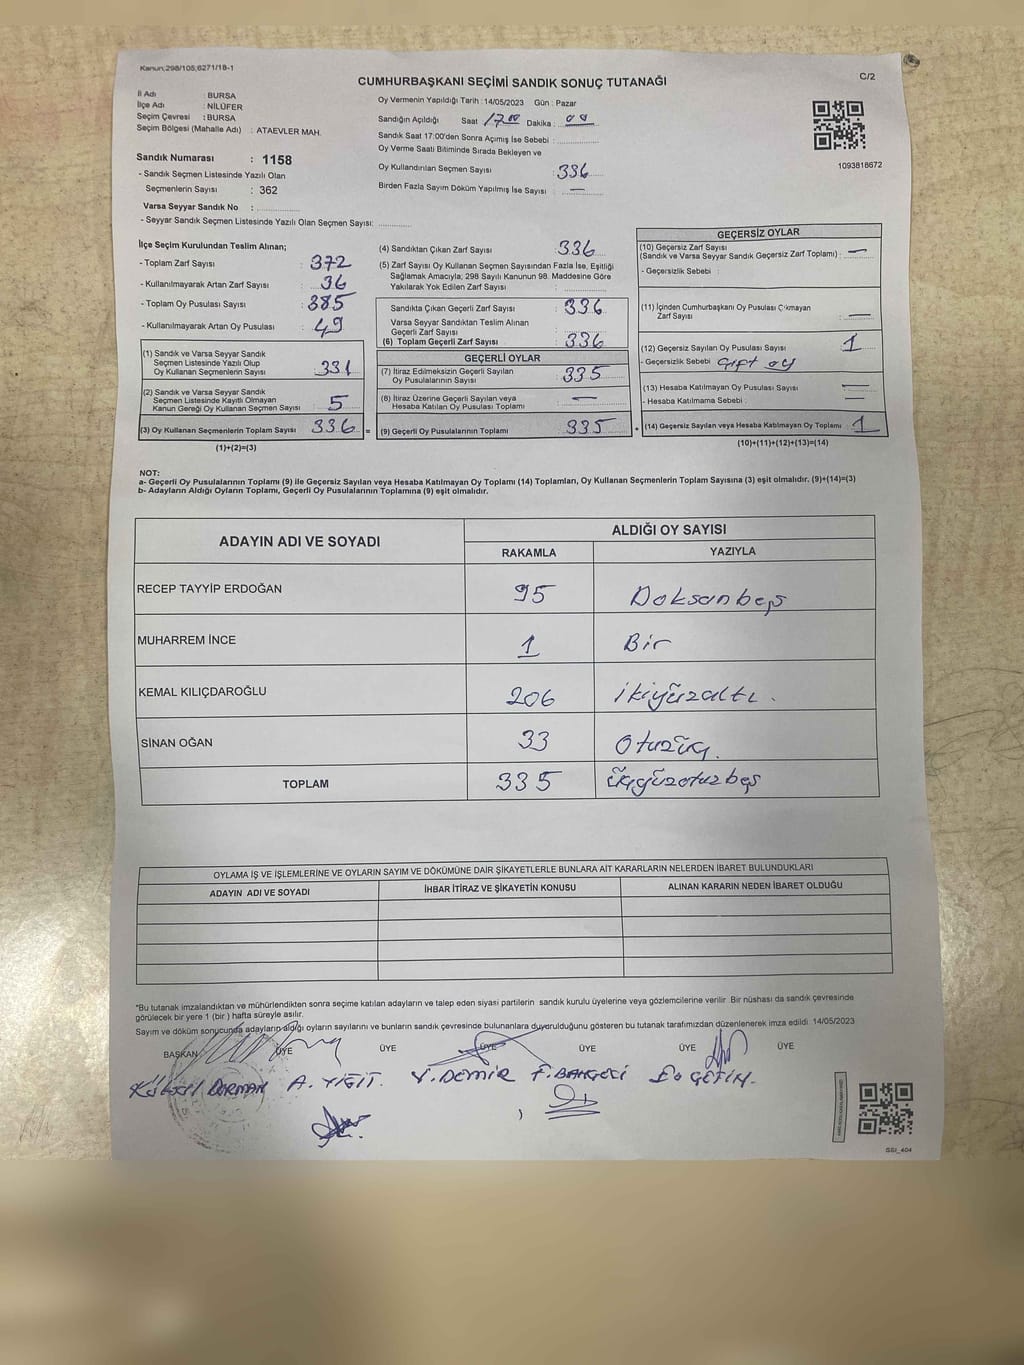 Kanun:298/105;6271/18-1
C/2
CUMHURBAŞKANI SEÇİMİ SANDIK SONUÇ TUTANAĞI
İl Adı : BURSA
İlçe Adı : NİLÜFER
Seçim Çevresi : BURSA
Seçim Bölgesi (Mahalle Adı) : ATAEVLER MAH.
Sandık Numarası : 1158
- Sandık Seçmen Listesinde Yazılı Olan
Seçmenlerin Sayısı : 362
Varsa Seyyar Sandık No :
- Seyyar Sandık Seçmen Listesinde Yazılı Olan Seçmen Sayısı:
Oy Vermenin Yapıldığı Tarih : 14/05/2023 Gün : Pazar
Sandığın Açıldığı Saat 17.00 Dakika : 00
Sandık Saat 17:00'den Sonra Açımış İse Sebebi :
Oy Verme Saati Bitiminde Sırada Bekleyen ve
Oy Kullandırılan Seçmen Sayısı : 336
Birden Fazla Sayım Döküm Yapılmış İse Sayısı : —
1093818672
İlçe Seçim Kurulundan Teslim Alınan;
- Toplam Zarf Sayısı : 372
- Kullanılmayarak Artan Zarf Sayısı : 36
- Toplam Oy Pusulası Sayısı : 385
- Kullanılmayarak Artan Oy Pusulası : 49
(1) Sandık ve Varsa Seyyar Sandık
Seçmen Listesinde Yazılı Olup
Oy Kullanan Seçmenlerin Sayısı : 331
(2) Sandık ve Varsa Seyyar Sandık
Seçmen Listesinde Kayıtlı Olmayan
Kanun Gereği Oy Kullanan Seçmen Sayısı : 5
(3) Oy Kullanan Seçmenlerin Toplam Sayısı : 336 =
(1)+(2)=(3)
(4) Sandıktan Çıkan Zarf Sayısı : 336
(5) Zarf Sayısı Oy Kullanan Seçmen Sayısından Fazla İse, Eşitliği
Sağlamak Amacıyla; 298 Sayılı Kanunun 98. Maddesine Göre
Yakılarak Yok Edilen Zarf Sayısı :
Sandıkta Çıkan Geçerli Zarf Sayısı : 336
Varsa Seyyar Sandıktan Teslim Alınan
Geçerli Zarf Sayısı :
(6) Toplam Geçerli Zarf Sayısı : 336
GEÇERLİ OYLAR
(7) İtiraz Edilmeksizin Geçerli Sayılan
Oy Pusulalarının Sayısı : 335
(8) İtiraz Üzerine Geçerli Sayılan veya
Hesaba Katılan Oy Pusulası Toplamı : —
(9) Geçerli Oy Pusulalarının Toplamı : 335 +
GEÇERSİZ OYLAR
(10) Geçersiz Zarf Sayısı
(Sandık ve Varsa Seyyar Sandık Geçersiz Zarf Toplamı) : —
- Geçersizlik Sebebi :
(11) İçinden Cumhurbaşkanı Oy Pusulası Çıkmayan
Zarf Sayısı : —
(12) Geçersiz Sayılan Oy Pusulası Sayısı : 1
- Geçersizlik Sebebi : Çift oy
(13) Hesaba Katılmayan Oy Pusulası Sayısı : —
- Hesaba Katılmama Sebebi : —
(14) Geçersiz Sayılan veya Hesaba Katılmayan Oy Toplamı : 1
(10)+(11)+(12)+(13)=(14)
NOT:
a- Geçerli Oy Pusulalarının Toplamı (9) ile Geçersiz Sayılan veya Hesaba Katılmayan Oy Toplamı (14) Toplamları, Oy Kullanan Seçmenlerin Toplam Sayısına (3) eşit olmalıdır. (9)+(14)=(3)
b- Adayların Aldığı Oyların Toplamı, Geçerli Oy Pusulalarının Toplamına (9) eşit olmalıdır.
ADAYIN ADI VE SOYADI ALDIĞI OY SAYISI
RAKAMLA YAZIYLA
RECEP TAYYİP ERDOĞAN 95 Doksanbeş
MUHARREM İNCE 1 Bir
KEMAL KILIÇDAROĞLU 206 ikiyüzaltı.
SİNAN OĞAN 33 Otuzüç.
TOPLAM 335 üçyüzotuzbeş
OYLAMA İŞ VE İŞLEMLERİNE VE OYLARIN SAYIM VE DÖKÜMÜNE DAİR ŞİKAYETLERLE BUNLARA AİT KARARLARIN NELERDEN İBARET BULUNDUKLARI
ADAYIN ADI VE SOYADI İHBAR İTİRAZ VE ŞİKAYETİN KONUSU ALINAN KARARIN NEDEN İBARET OLDUĞU
*Bu tutanak imzalandıktan ve mühürlendikten sonra seçime katılan adayların ve talep eden siyasi partilerin sandık kurulu üyelerine veya gözlemcilerine verilir. Bir nüshası da sandık çevresinde
görülecek bir yere 1 (bir ) hafta süreyle asılır.
Sayım ve döküm sonucunda adayların aldığı oyların sayılarını ve bunların sandık çevresinde bulunanlara duyurulduğunu gösteren bu tutanak tarafımızdan düzenlenerek imza edildi. 14/05/2023
BAŞKAN ÜYE ÜYE ÜYE ÜYE ÜYE ÜYE
A. YİĞİT. Y. DEMİR F. BAHÇECİ
SSI_404